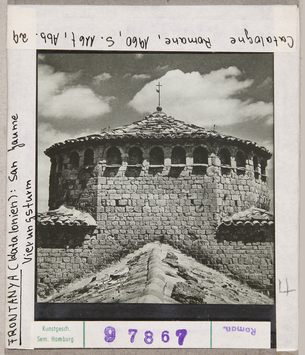 Catalogne Romane, 1960, S. 116f, Abb. 29
FRONTANYA (Katalonien): San Jaume
Vierungsturm
Kunstgesch.
Sem. Hamburg
97867
Roman.